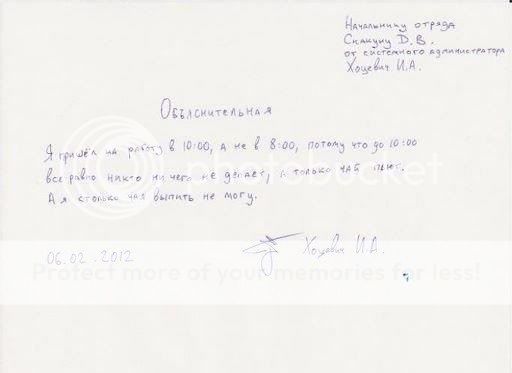 Начальнику отряда
Скакуну Д.В.
от системного администратора
Хоцевич И.А.
Объяснительная
Я пришёл на работу в 10:00, а не в 8:00, потому что до 10:00
все равно никто ничего не делает, а только чай пьют.
А я столько чая выпить не могу.
06.02.2012
Хоцевич И.А.
photobucket
Protect more of your memories for less!